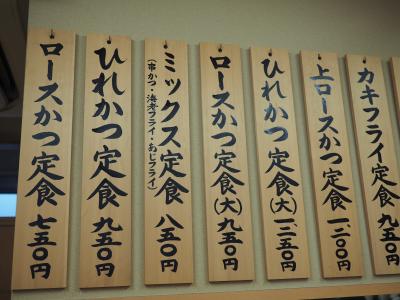 ロースかつ定食 七五〇円
ひれかつ定食 九五〇円
ミックス定食 八五〇円
(串かつ・海老フライ・あじフライ)
ロースかつ定食(大) 九五〇円
ひれかつ定食(大) 一三五〇円
上ロースかつ定食 一二〇〇円
カキフライ定食 九五〇円